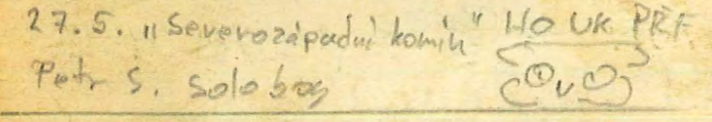 27.5. "Severozápadní komín" HO UK PŘF
Petr S. solo boy